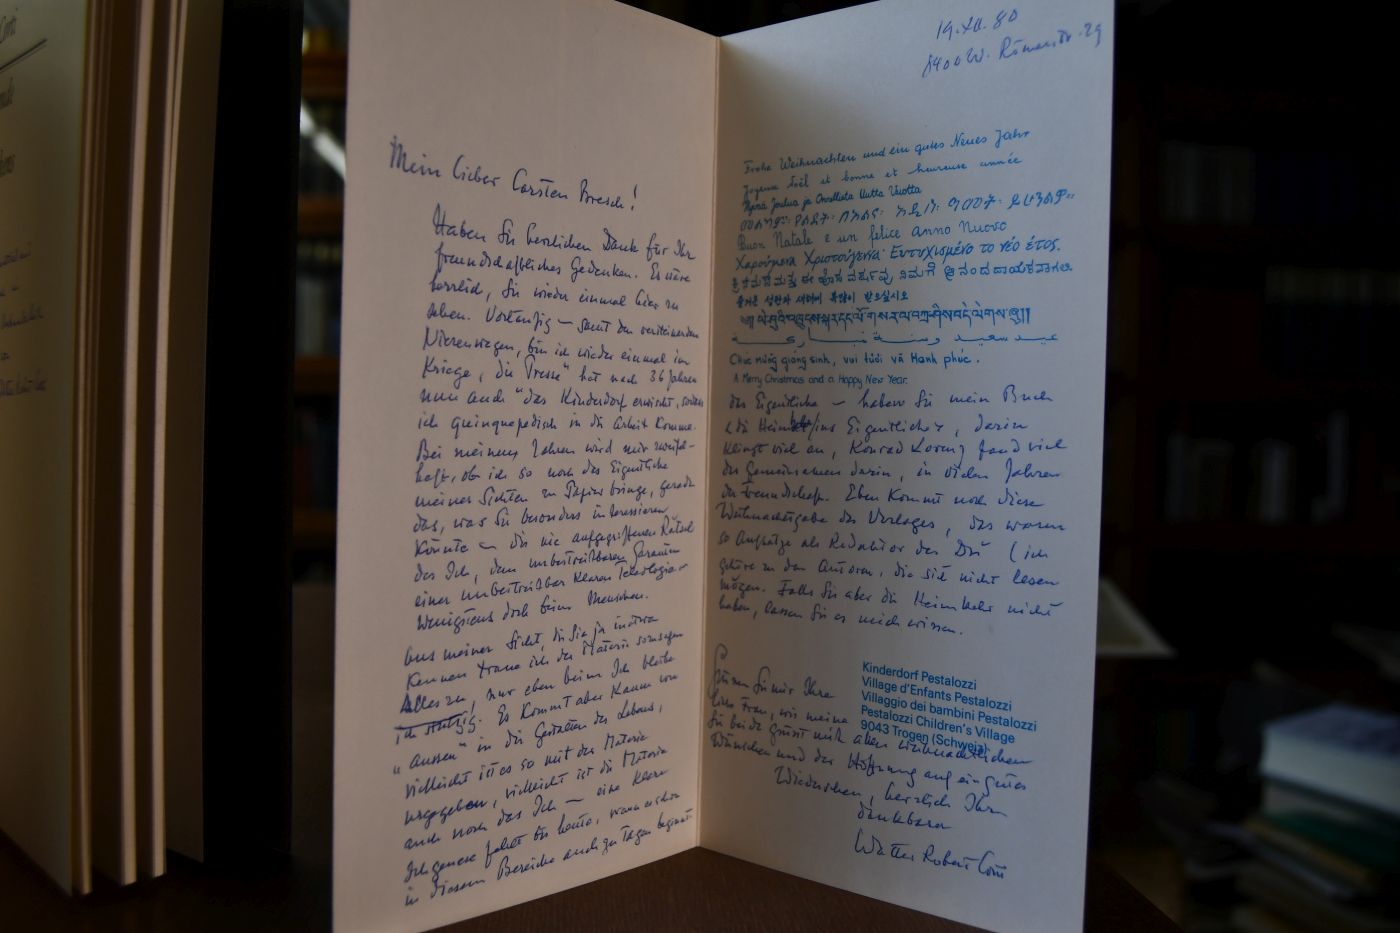 Mein lieber Carsten Bresch!
Haben Sie herzlichen Dank für Ihr
freundschaftliches Gedenken. Es wäre
herrlich, Sie wieder einmal hier zu
sehen. Vorläufig – samt den
Nierenwegen, bin ich wieder einmal im
Kriege, „die Presse" hat nach 36 Jahren
nun auch "das Kinderdorf erwischt, sodass
ich quinquepedisch in die Arbeit komme.
Bei meinen Jahren wird mir zweifel-
haft, ob ich so noch das Eigentliche
meiner Sichten zu Papier bringe, gerade
das, was Sie besonders interessieren
könnte – die nie aufgegriffenen Rätsel
des Ich, dem unbestreitbaren Garanten
einer unbestreitbar klaren Teleologie –
wenigstens doch beim Menschen.
Aus meiner Sicht, die Sie ja
kennen traue ich der Materie sozusagen
Alles zu, nur eben beim Ich bleibe
ich stutzig. Es kommt aber kaum von
„aussen" in die Gestalten des Lebens,
vielleicht ist es so mit der Materie
urgegeben, vielleicht ist die Materie
auch noch das Ich – eine klare
Ichgenese fehlt bis heute, wann es schon
in diesem Bereiche auch zu tagen beginnt.
19.XII.80
8400 W. Römerstr. 29
Frohe Weihnachten und ein gutes Neues Jahr
Joyeux Noël et bonne et heureuse année
Hyvä Joulua ja Onnellista Uutta Vuotta
Buon Natale e un felice Anno Nuovo
Χαρούμενα Χριστούγεννα Ευτυχισμένο το νέο έτος.
즐거운 성탄과 새해에 복많이 받으십시오
عيد سعيد وسنة
Chúc mừng giáng sinh, vui tươi và Hạnh phúc.
A Merry Christmas and a Happy New Year.
das Eigentliche – haben Sie mein Buch
ins Eigentliche>, darin
klingt viel an, Konrad Lorenz fand viel
des Gemeinsamen darin, in vielen Jahren
der Freundschaft. Eben kommt noch diese
Weihnachtsgabe des Verlages, das waren
so Aufsätze als Redaktor des Du (ich
gehöre zu den Autoren, die sich nicht lesen
mögen. Falls Sie aber die Heimkehr nicht
haben, lassen Sie es mich wissen.
Kinderdorf Pestalozzi
Village d'Enfants Pestalozzi
Villaggio dei bambini Pestalozzi
Pestalozzi Children's Village
9043 Trogen (Schweiz)
Grüssen Sie mir Ihre
liebe Frau, wie meine
Sie beide grüsst mit allen weihnachtlichen
Wünschen und der Hoffnung auf ein gutes
Wiedersehen, herzlich Ihr
dankbarer
Walter Robert Corti